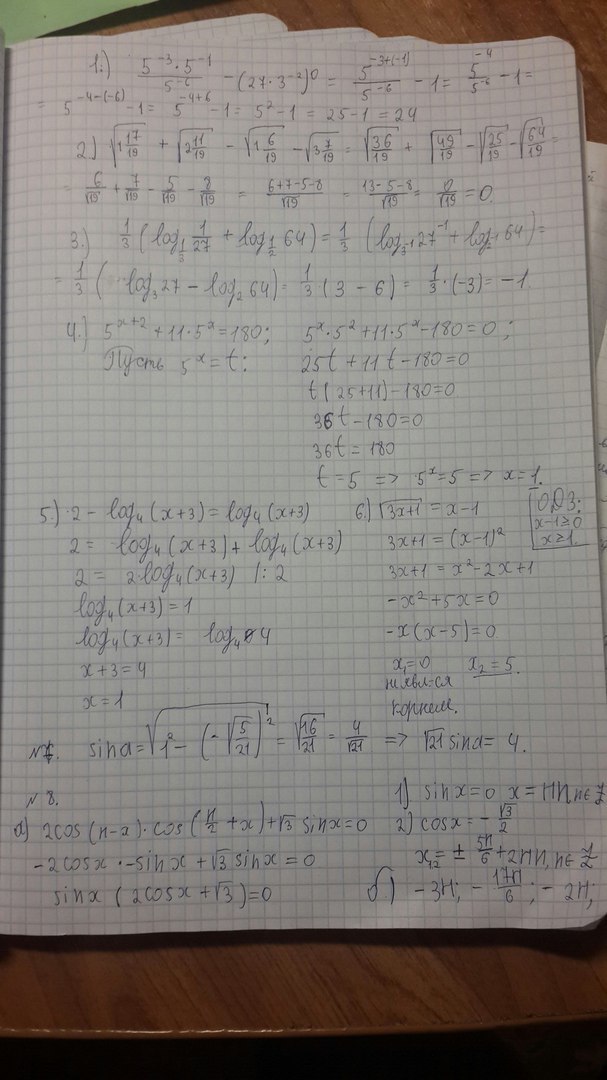 1.) 5^-3 · 5^-1 / 5^-6 − (27 · 3^-2)^0 = 5^-3+(-1) / 5^-6 − 1 = 5^-4 / 5^-6 − 1 =
= 5^-4-(-6) − 1 = 5^-4+6 − 1 = 5² − 1 = 25 − 1 = 24
2.) √(1 17/19) + √(2 11/19) − √(1 6/19) − √(3 7/19) = √(36/19) + √(49/19) − √(25/19) − √(64/19) =
= 6/√19 + 7/√19 − 5/√19 − 8/√19 = (6+7−5−8)/√19 = (13−5−8)/√19 = 0/√19 = 0.
3.) 1/3 (log_1/3 1/27 + log_1/2 64) = 1/3 (log_3^-1 27^-1 + log_2^-1 64) =
= 1/3 (log_3 27 − log_2 64) = 1/3 · (3 − 6) = 1/3 · (−3) = −1.
4.) 5^x+2 + 11 · 5^x = 180; 5^x · 5² + 11 · 5^x − 180 = 0;
Пусть 5^x = t: 25t + 11t − 180 = 0
t(25+11) − 180 = 0
36t − 180 = 0
36t = 180
t = 5 => 5^x = 5 => x = 1.
5.) 2 − log_4 (x+3) = log_4 (x+3)
2 = log_4 (x+3) + log_4 (x+3)
2 = 2 log_4 (x+3) |: 2
log_4 (x+3) = 1
log_4 (x+3) = log_4 4
x+3 = 4
x = 1
6.) √(3x+1) = x−1
ОДЗ:
x−1≥0
x≥1.
3x+1 = (x−1)²
3x+1 = x²−2x+1
−x²+5x = 0
−x(x−5) = 0
x₁=0 x₂=5.
не явл-ся
корнем.
№7. sin α = √(1² − (−√(5/21))²) = √(16/21) = 4/√21 => √21 sin α = 4.
№8.
а) 2cos(π−x) · cos(π/2 + x) + √3 sin x = 0
−2cos x · −sin x + √3 sin x = 0
sin x (2cos x + √3) = 0
1) sin x = 0 x = πn, n∈Z
2) cos x = −√3/2
x₁,₂ = ± 5π/6 + 2πn, n∈Z
б.) −3π; −17π/6; −2π;